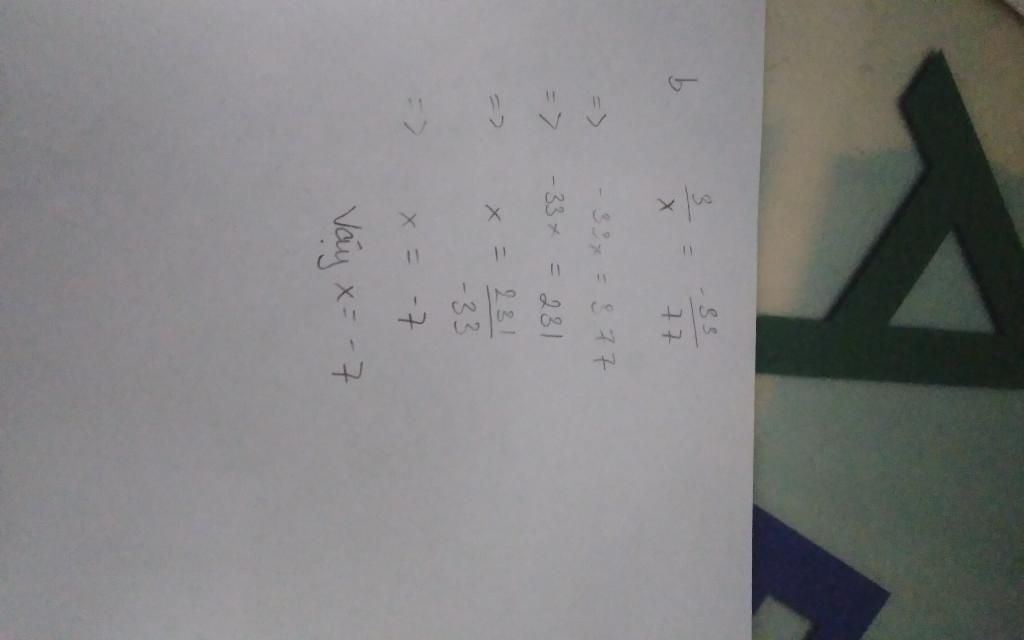 b 3/x = -33/77
=> -33x = 3 77
=> -33x = 231
=> x = 231/-33
=> x = -7
Vậy x = -7